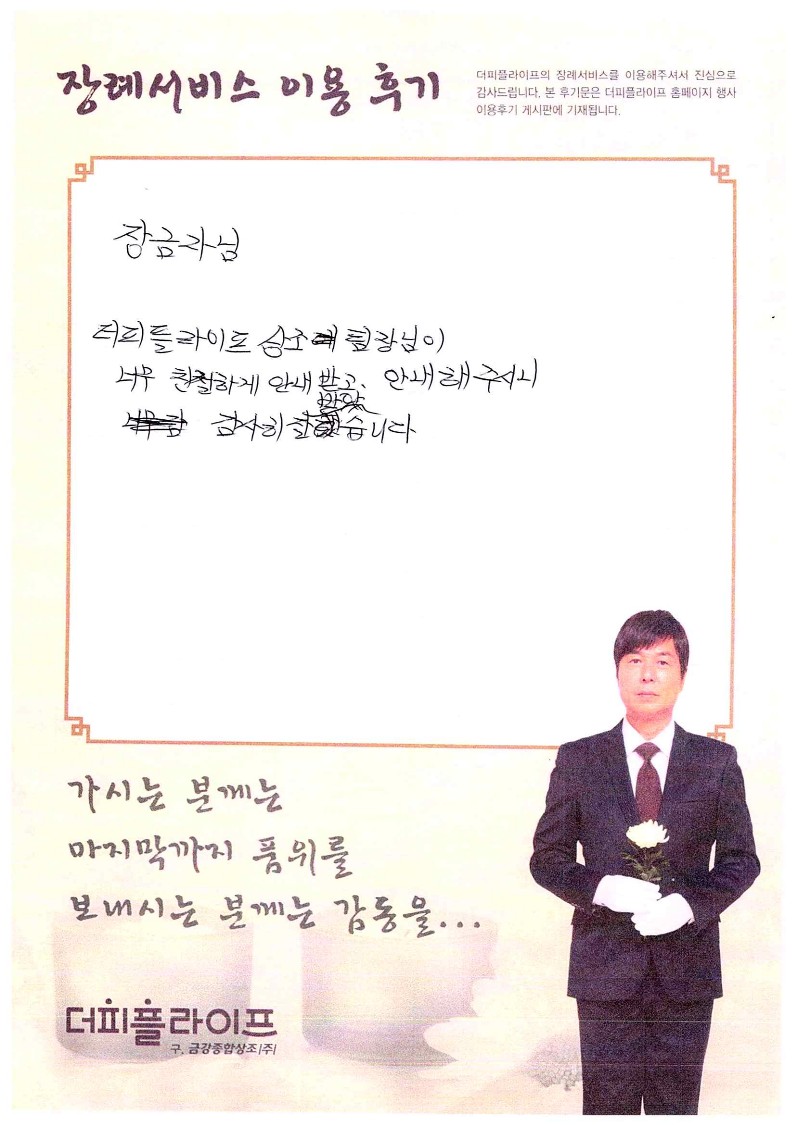 장례서비스 이용 후기
더피플라이프의 장례서비스를 이용해주셔서 진심으로
감사드립니다. 본 후기문은 더피플라이프 홈페이지 행사
이용후기 게시판에 기재됩니다.
장금자님
더피플라이프 상조 팀장님이
너무 친철하게 안내 받고, 안내해 주셔서
감사히 잘 받았습니다
가시는 분께는
마지막까지 품위를
보내시는 분께는 감동을...
더피플라이프
구. 금강종합상조(주)